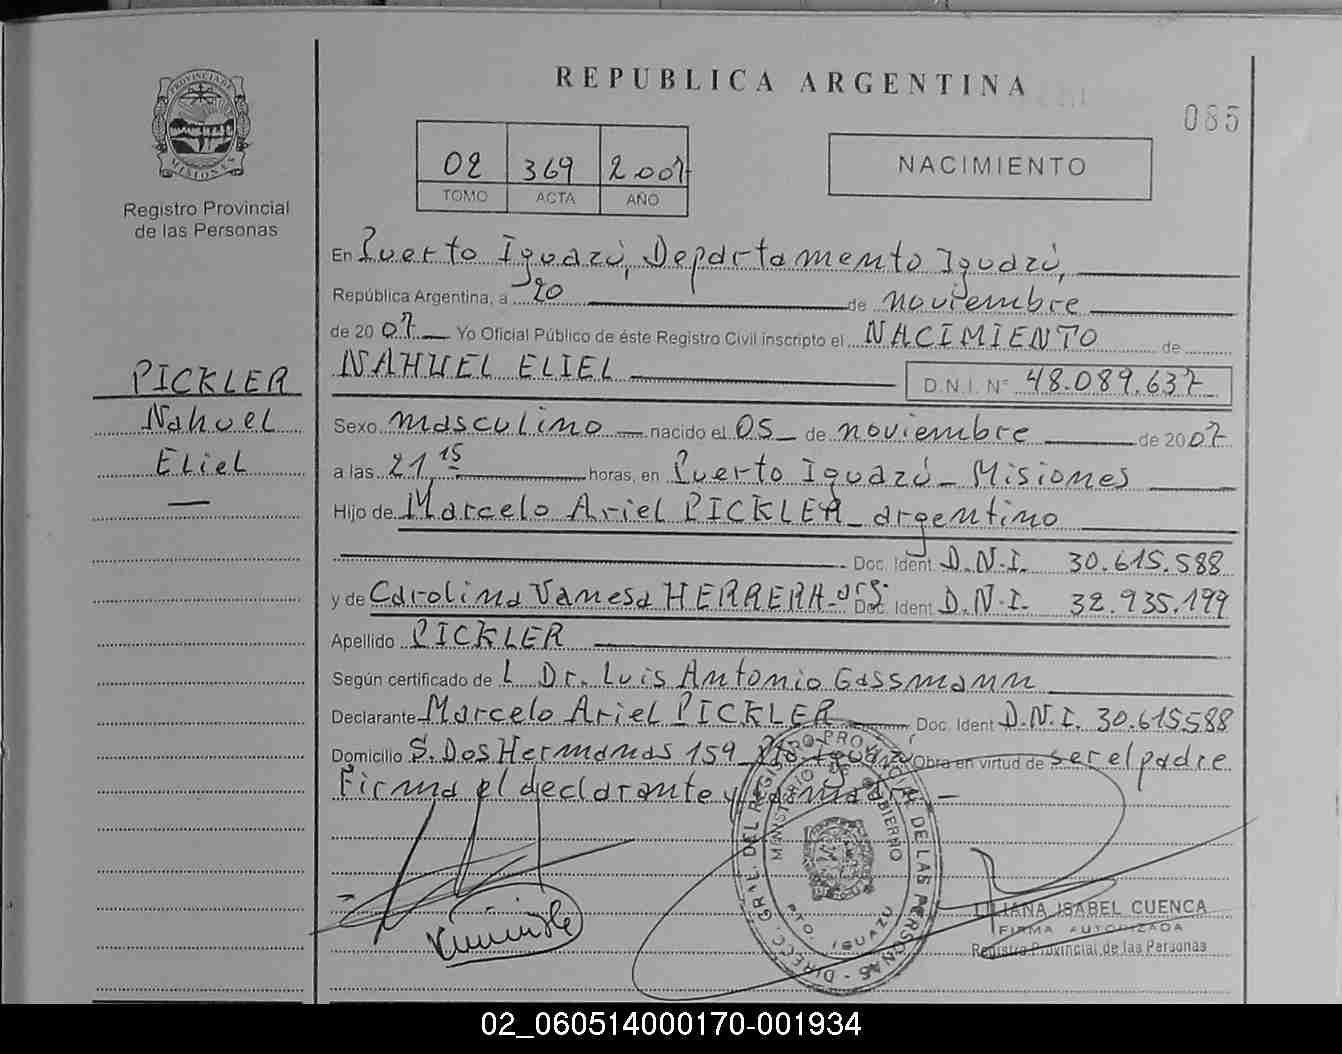 REPUBLICA ARGENTINA
085
PROVINCIA DE
MISIONES
Registro Provincial
de las Personas
02 369 2007
TOMO ACTA AÑO
NACIMIENTO
En Puerto Iguazú, Departamento Iguazú,
República Argentina, a 20 de noviembre
de 2007 Yo Oficial Público de éste Registro Civil inscripto el NACIMIENTO de
NAHUEL ELIEL D.N.I. Nº 48.089.637
PICKLER
Nahuel
Eliel
Sexo masculino nacido el 05 de noviembre de 2007
a las 21,15 horas, en Puerto Iguazú - Misiones
Hijo de Marcelo Ariel PICKLER - argentino
Doc. Ident D.N.I. 30.615.588
y de Carolina Vanesa HERRERA - arg. Doc. Ident D.N.I. 32.935.199
Apellido PICKLER
Según certificado de L Dr. Luis Antonio Gassmann
Declarante Marcelo Ariel PICKLER Doc. Ident D.N.I. 30.615588
Domicilio S. Dos Hermanas 159 Pto Iguazú Obra en virtud de ser el padre
Firma el declarante y
DIRECC. GRAL. DEL REGISTRO PROVINCIAL DE LAS PERSONAS
MINISTERIO DE GOBIERNO
PTO. IGUAZU
LILIANA ISABEL CUENCA
FIRMA AUTORIZADA
Registro Provincial de las Personas
02_060514000170-001934